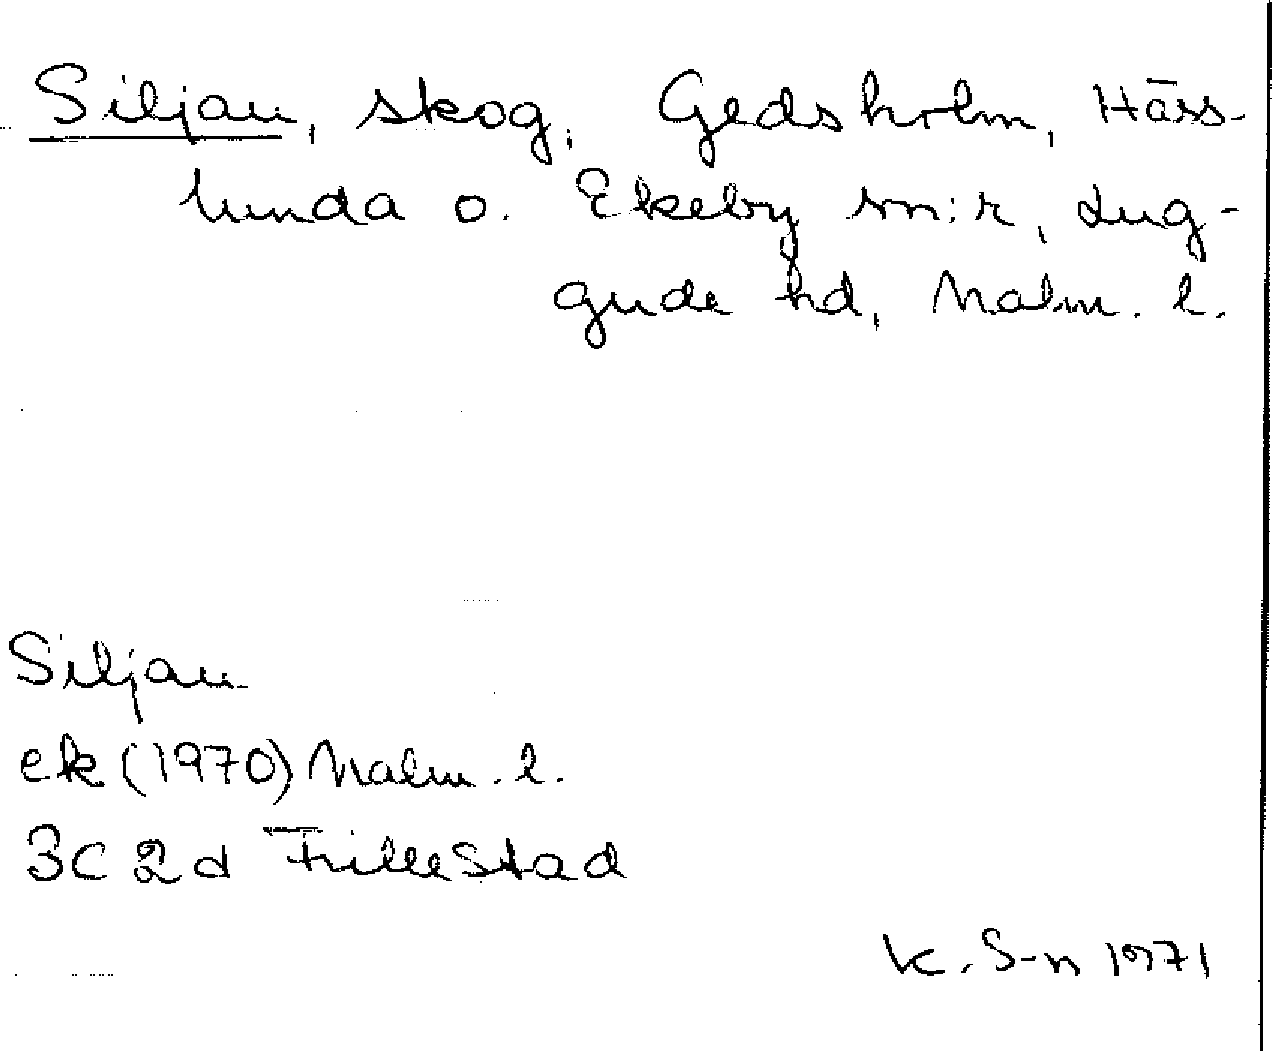 Siljan, skog, Gedsholm, Häss-
lunda o. Ekeby sn:r, Lug-
gude hd, Malm. l.
Siljan
ek (1970) Malm. l.
3C 2d Fillestad
K. S-n 1971